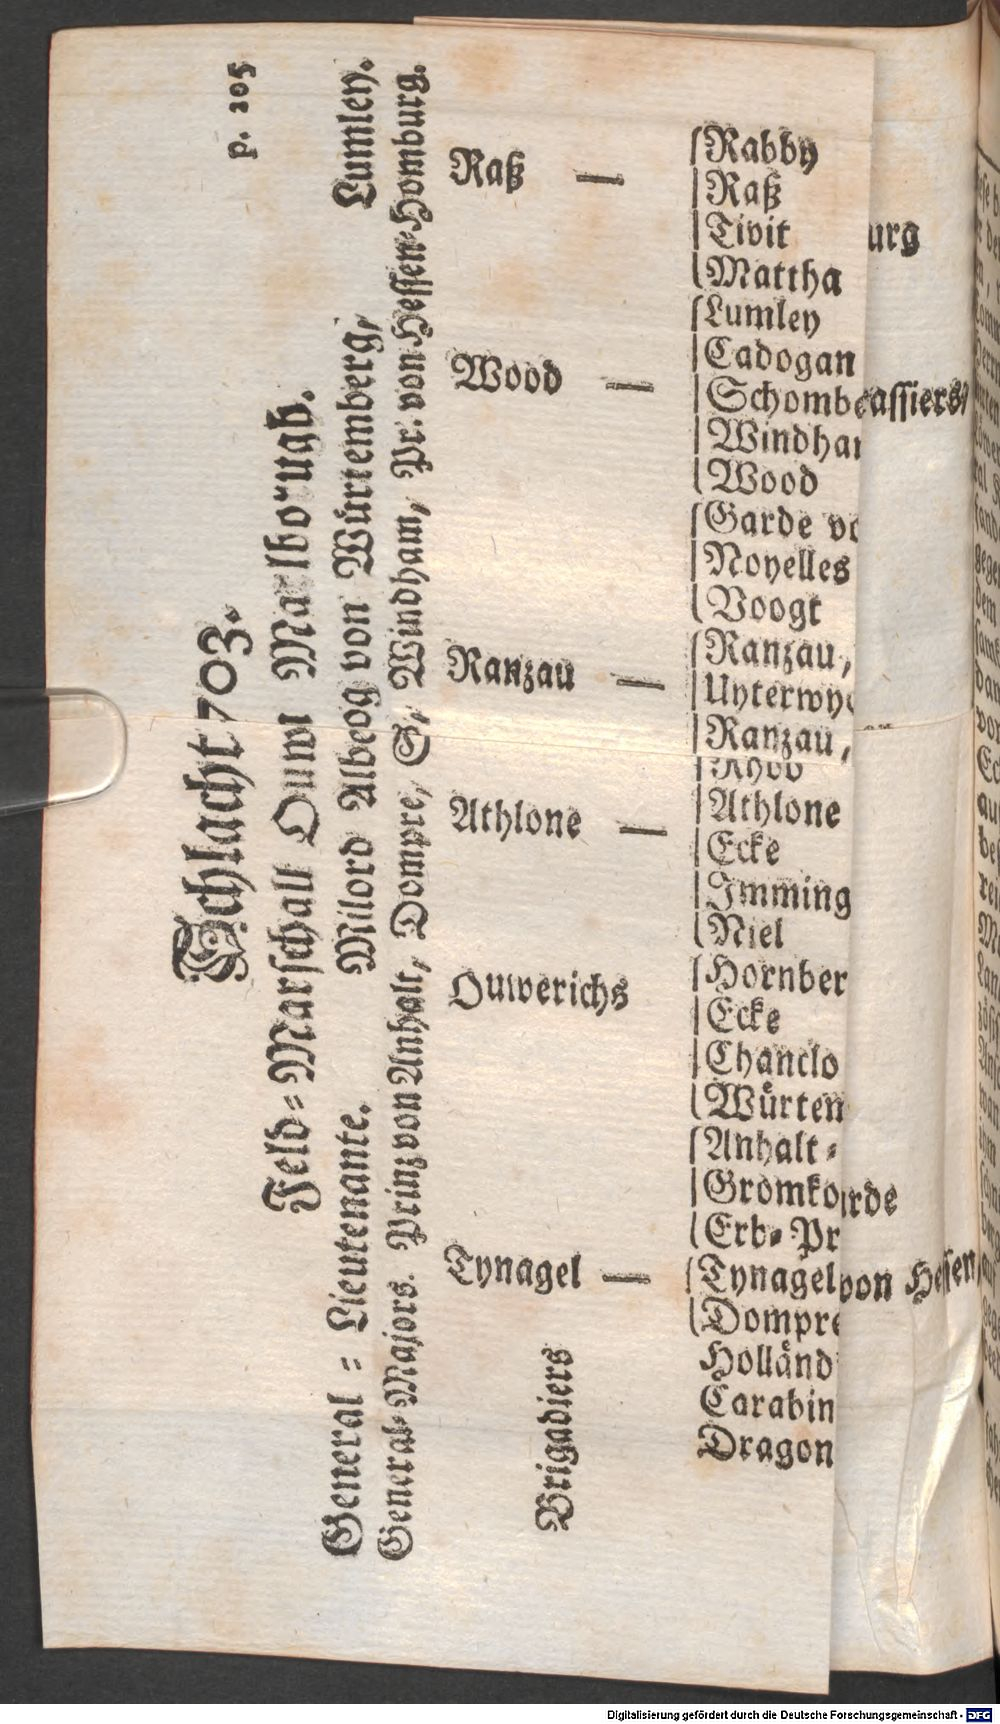 p. 205
Schlacht 703.
Feld-Marschall Ouwi Marlborugh.
General-Lieutenante. Milord Albeog von Würtemberg, Lumley.
General-Majors. Prinz von Anhalt, Dompre, S, Windham, Pr. von Hessen-Homburg.
Raß —
Rabby
Raß
Tivit
urg
Mattha
Wood —
Lumley
Cadogan
Schomb
assiers,
Windha
Wood
Garde vo
Noyelles
Voogt
Ranzau —
Ranzau,
Uyterwy
Ranzau,
Athlone —
Athlone
Ecke
Imming
Niel
Ouwerichs
Hornber
Ecke
Chanclo
Würtem
Anhalt-
Gromko
rde
Erb-Pr
Tynagel —
Tynagel
von Hessen,
Dompre
Brigadiers
Holländ
Carabin
Dragon
Digitalisierung gefördert durch die Deutsche Forschungsgemeinschaft - DFG